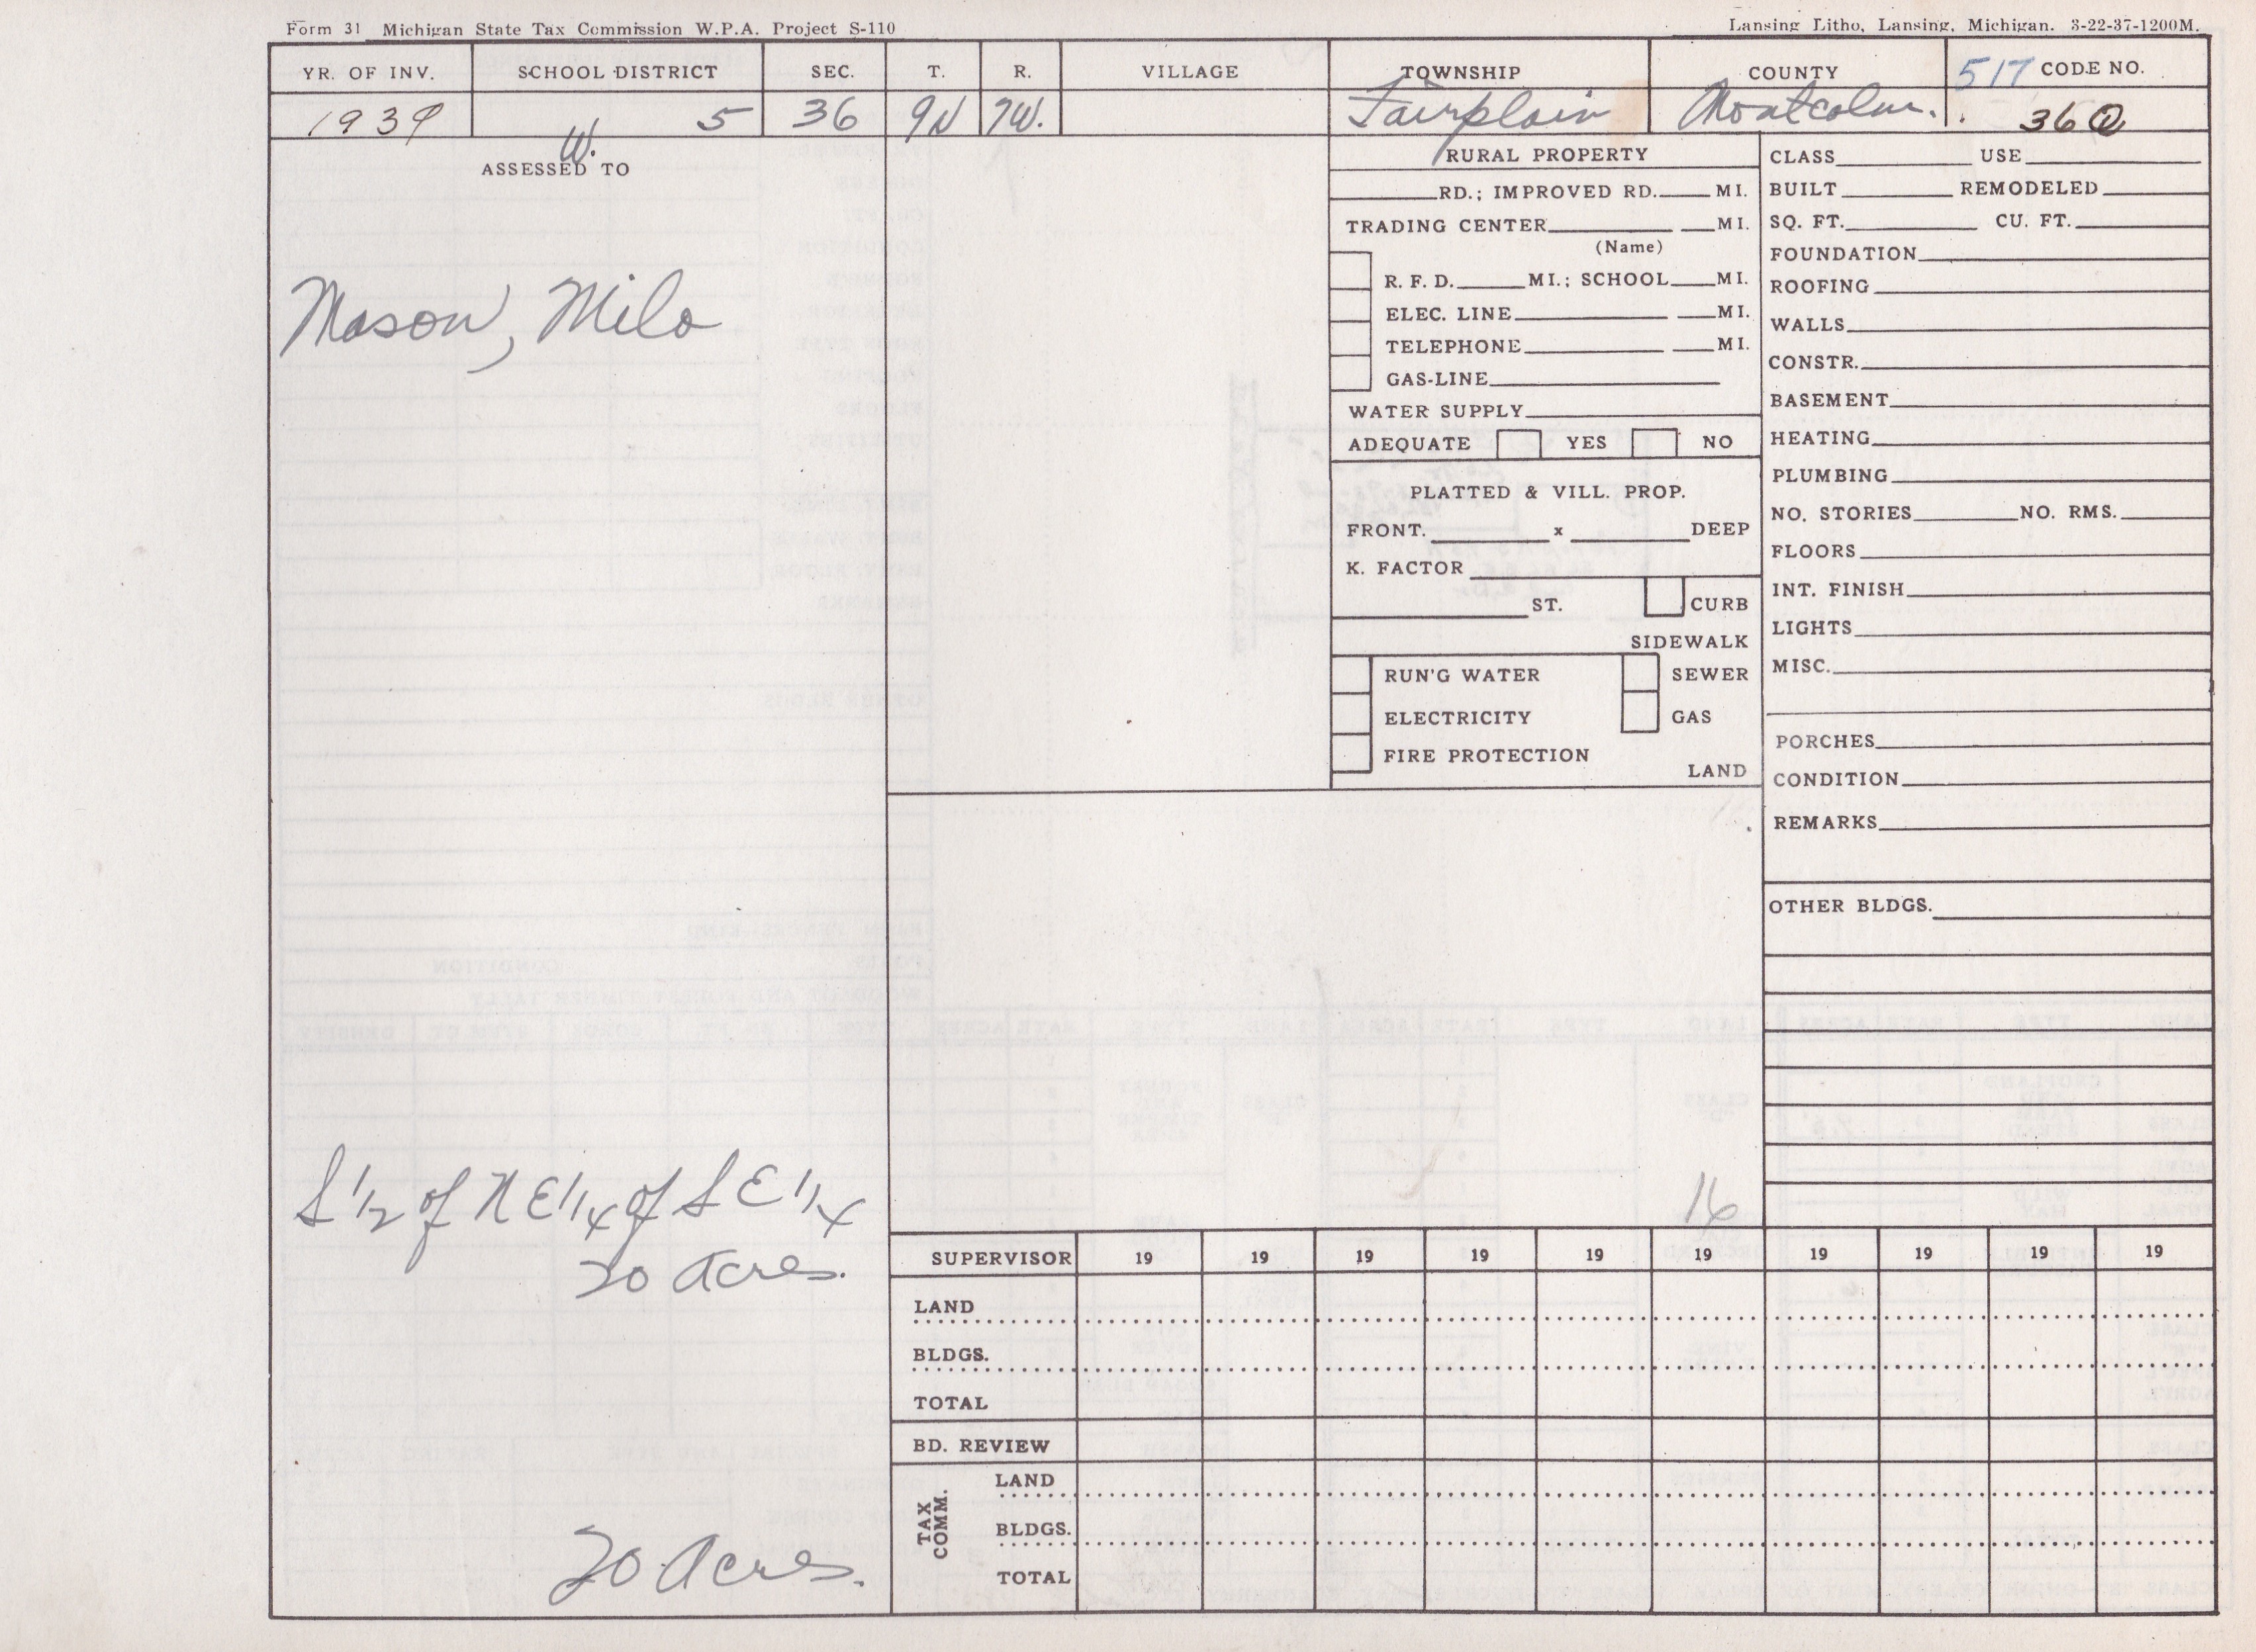 Form 31 Michigan State Tax Commission W.P.A. Project S-110
Lansing Litho, Lansing, Michigan. 3-22-37-1200M.
YR. OF INV. SCHOOL DISTRICT SEC. T. R. VILLAGE TOWNSHIP COUNTY 517 CODE NO.
1939 5 36 9N 7W. Fairplain Montcalm. 36
W.
ASSESSED TO
Mason, Milo
S 1/2 of N E 1/4 of S E 1/4
20 Acres.
20 Acres.
RURAL PROPERTY
RD.; IMPROVED RD. MI.
TRADING CENTER MI.
(Name)
R. F. D. MI.; SCHOOL MI.
ELEC. LINE MI.
TELEPHONE MI.
GAS-LINE
WATER SUPPLY
ADEQUATE YES NO
PLATTED & VILL. PROP.
FRONT. x DEEP
K. FACTOR
ST. CURB
SIDEWALK
RUN'G WATER SEWER
ELECTRICITY GAS
FIRE PROTECTION
LAND
16
CLASS USE
BUILT REMODELED
SQ. FT. CU. FT.
FOUNDATION
ROOFING
WALLS
CONSTR.
BASEMENT
HEATING
PLUMBING
NO. STORIES NO. RMS.
FLOORS
INT. FINISH
LIGHTS
MISC.
PORCHES
CONDITION
REMARKS
OTHER BLDGS.
SUPERVISOR 19 19 19 19 19 19 19 19 19 19
LAND
BLDGS.
TOTAL
BD. REVIEW
TAX COMM.
LAND
BLDGS.
TOTAL